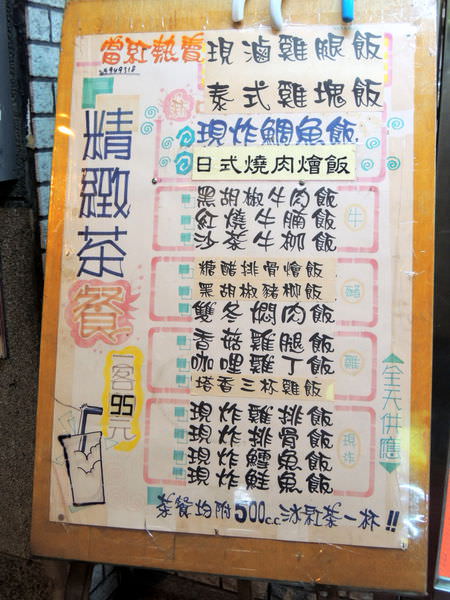 當紅熱賣
現滷雞腿飯
泰式雞塊飯
現炸鯛魚飯
日式燒肉燴飯
精緻茶餐
一客95元
黑胡椒牛肉飯
紅燒牛腩飯
沙茶牛柳飯
牛
糖醋排骨燴飯
黑胡椒豬柳飯
雙冬燜肉飯
香菇雞腿飯
咖哩雞丁飯
塔香三杯雞飯
雞
現炸雞排飯
現炸排骨飯
現炸鱈魚飯
現炸鮭魚飯
現炸
全天供應
茶餐均附500c.c冰紅茶一杯!!